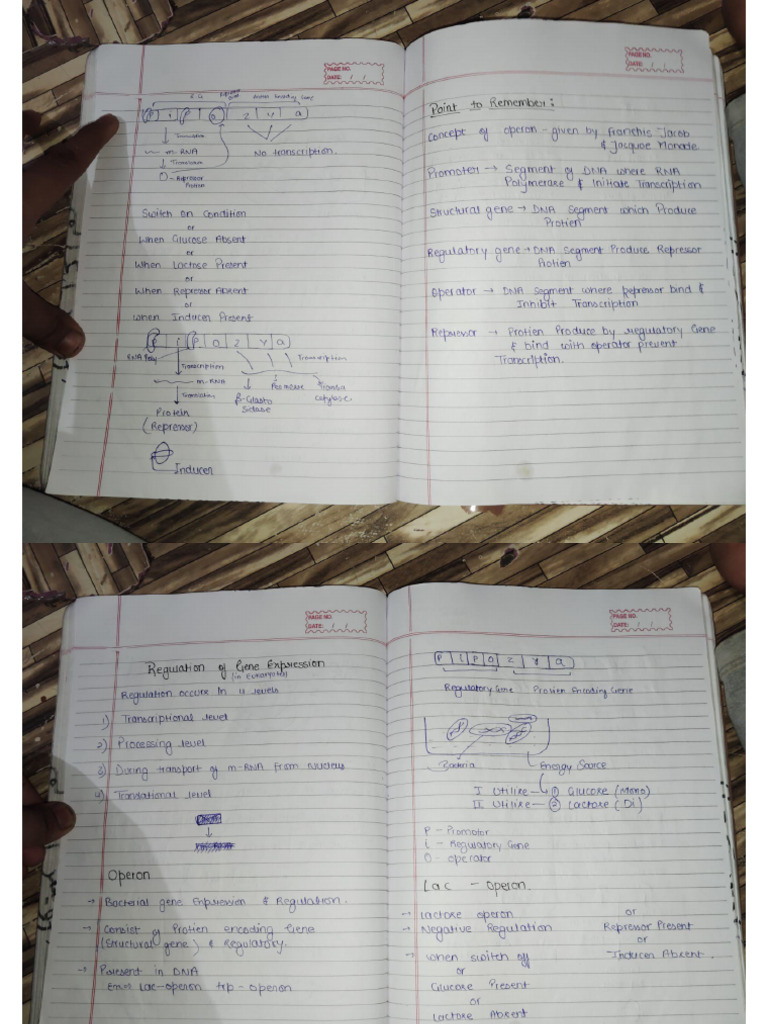 PAGE NO.
DATE: / /
P i P O z y a
Translation
m-RNA
Translation
Repressor
Protien
No transcription.
Switch on Condition
or
When Glucose Absent
or
When Lactose Present
or
When Repressor Absent
or
When Inducer Present
P i P O z y a
RNA Poly
Transcription
m-RNA
Translation
Protein
(Repressor)
Inducer
Transcription
Permease
PAGE NO.
DATE: / /
Point to Remember:
Concept of operon - given by Franchis Jacob
& Jacquoe Monade.
Promoter → Segment of DNA where RNA
Polymerase & Initiate Transcription
Structural gene → DNA Segment which Produce
Protien
Regulatory gene → DNA Segment Produce Repressor
Protien
Operator → DNA Segment where Repressor bind &
Inhibit Transcription
Repressor → Protien Produce by Regulatory Gene
& bind with operator prevent
Transcription.
PAGE NO.
DATE: / /
Regulation of Gene Expression
(in Eukaryotes)
Regulation occurs in 4 levels
1) Transcriptional level
2) Processing level
3) During transport of m-RNA from Nucleus
4) Translational level
Operon
→ Bacterial gene Expression & Regulation.
→ Consist of Protien encoding Gene
(Structural gene) & Regulatory.
→ Present in DNA
Lac-operon trp-operon
PAGE NO.
DATE: / /
P i P O z y a
Regulatory Gene Protien Encoding Gene
Bacteria
Energy Source
I Utilize - ① Glucose (Mono)
II Utilize - ② Lactose (Di)
P - Promotor
i - Regulatory Gene
O - operator
Lac - Operon.
→ lactose operon
→ Negative Regulation
→ When switch off
or
Glucose Present
or
Lactose Absent
or
Repressor Present
or
Inducer Absent.